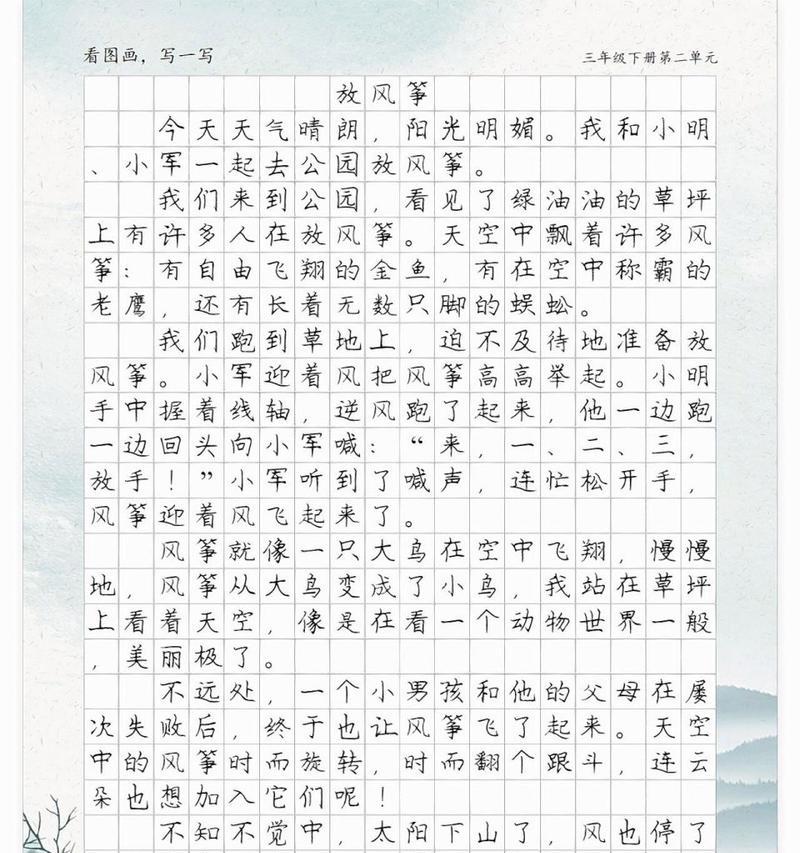 看图画，写一写
三年级下册第二单元
放风筝
今天天气晴朗，阳光明媚。我和小明
、小军一起去公园放风筝。
我们来到公园，看见了绿油油的草坪
上有许多人在放风筝。天空中飘着许多风
筝：有自由飞翔的金鱼，有在空中称霸的
老鹰，还有长着无数只脚的蜈蚣。
我们跑到草地上，迫不及待地准备放
风筝。小军迎着风把风筝高高举起。小明
手中握着线轴，逆风跑了起来，他一边跑
一边回头向小军喊：“来，一、二、三，
放手！”小军听到了喊声，连忙松开手，
风筝迎着风飞起来了。
风筝就像一只大鸟在空中飞翔，慢慢
地，风筝从大鸟变成了小鸟，我站在草坪
上看着天空，像是在看一个动物世界一般
，美丽极了。
不远处，一个小男孩和他的父母在屡
次失败后，终于也让风筝飞了起来。天空
中的风筝时而旋转，时而翻个跟斗，连云
朵也想加入它们呢！
不知不觉中，太阳下山了，风也停了